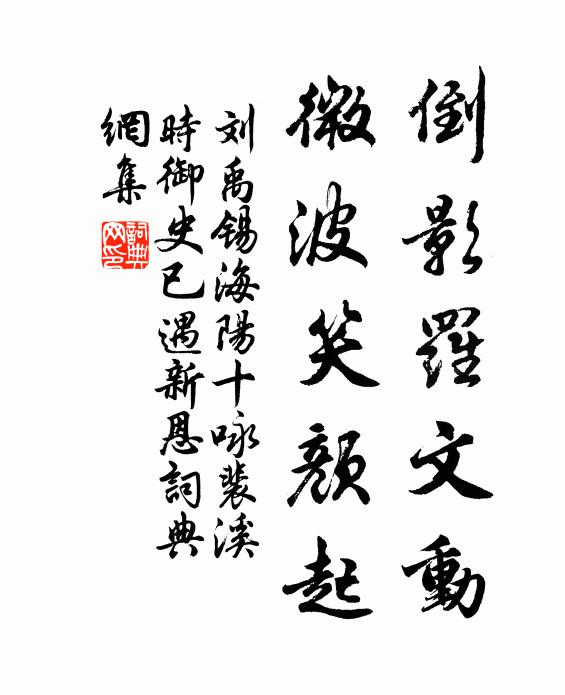 倒影羅文動
微波笑顏起
刘禹锡海陽十咏裴溪
時御史已遇新恩詞典
網集
詞典
网印